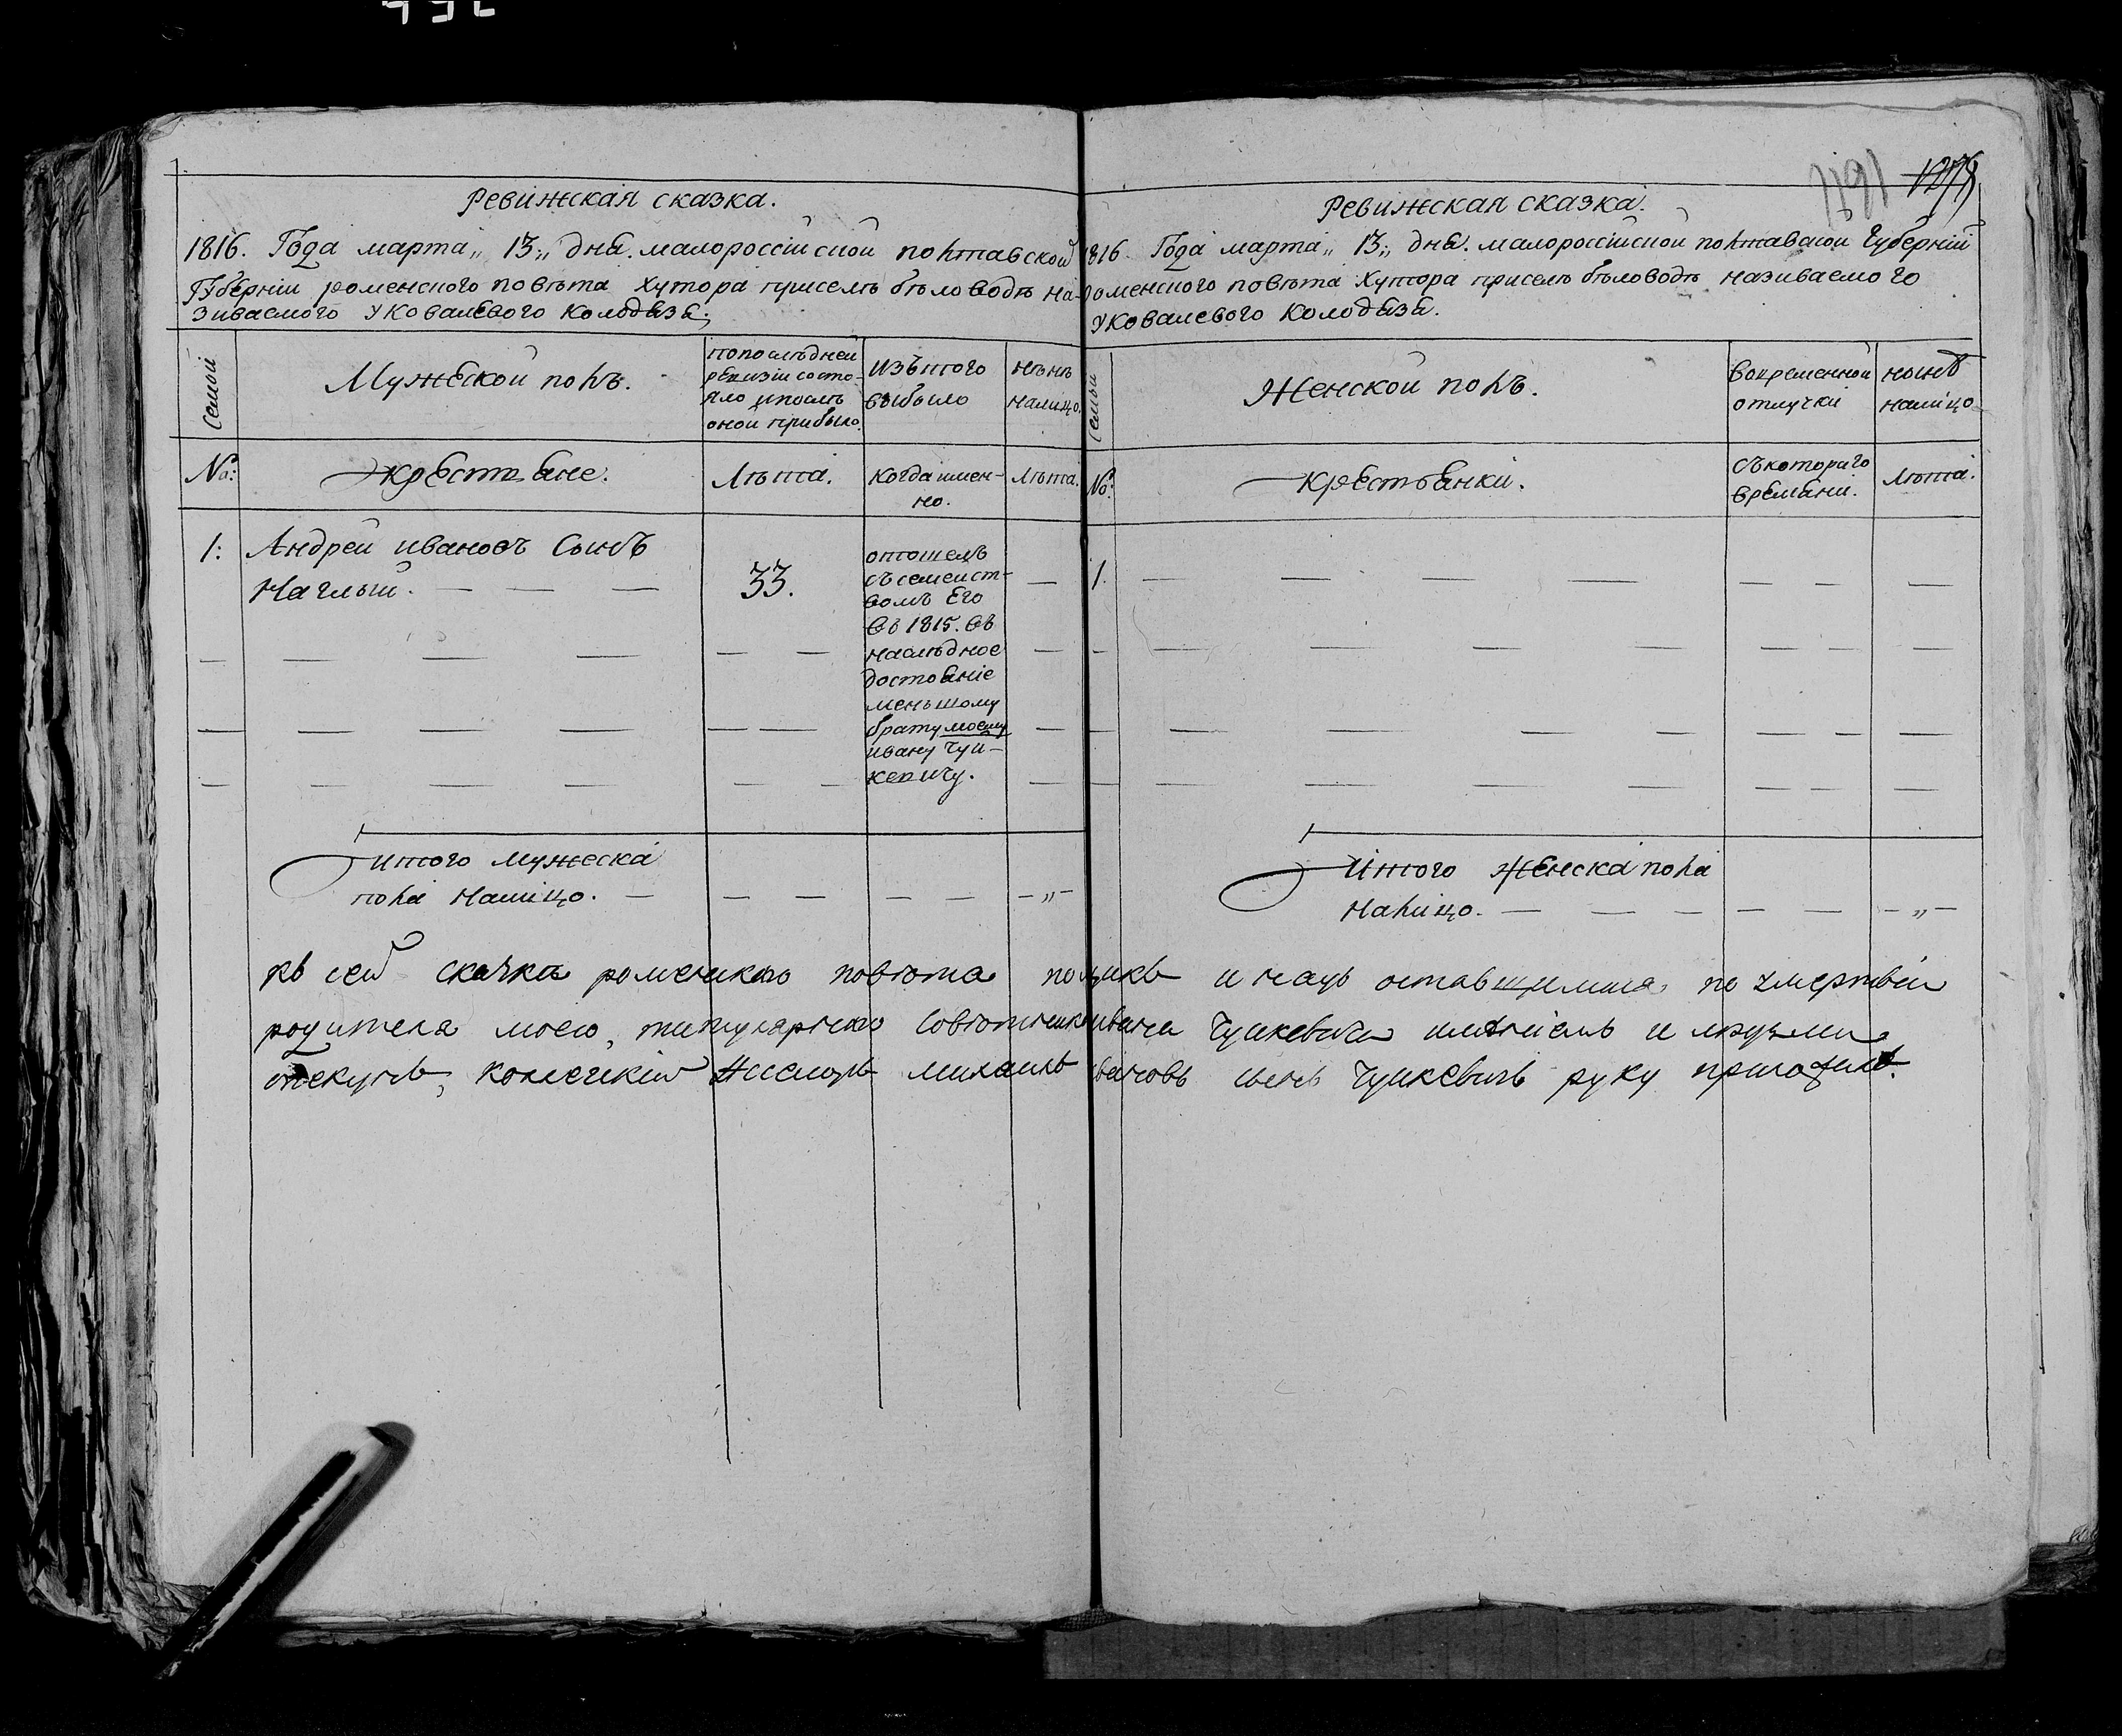 Ревижская сказка.
1816. Года марта „ 13 „ дня. малороссійской полтавской
Губерніи роменского повѣта хутора присемъ бѣловодъ на-
зиваемого у Ковалевого Колодязя.
Семьи
Мужеской полъ.
попослѣдней
ревизіи состо-
яло ипослѣ
оной прибыло.
Изътого
выбыло
нынѣ
налицо.
№:
крестяне.
Лѣта.
когда имен-
но.
Лѣта.
1: Андрей ивановъ Сынъ
Наглый. — — —
33.
отошелъ
съсемейст-
вомъ Его
въ 1815. въ
наслѣдное
достояніе
меньшому
брату моему
ивану Чуй-
кевичу.
итого мужеска
пола налицо. — — — — — — „ —
Ревижская сказка.
1816. Года марта „ 13 „ дня. малороссійской полтавской Губерніи
роменского повѣта Хутора присемъ бѣловодъ називаемого
у Ковалевого Колодязя.
Семьи
Женской полъ.
вовременной
отлучки
нынѣ
налицо
№:
крестьянки.
съкотораго
времяни.
Лѣта.
1.
Итого Женска пола
налицо. — — — — — — „ —
къ сей сказкѣ роменского повѣта надъ оставшимися по смерти
родителя моего, титулярного совѣтника ивана Чуйкевича имѣніемъ и людьми
опекунъ, коллегскій Ассесоръ михаилъ ивановъ сынъ Чуйкевичъ руку приложилъ.